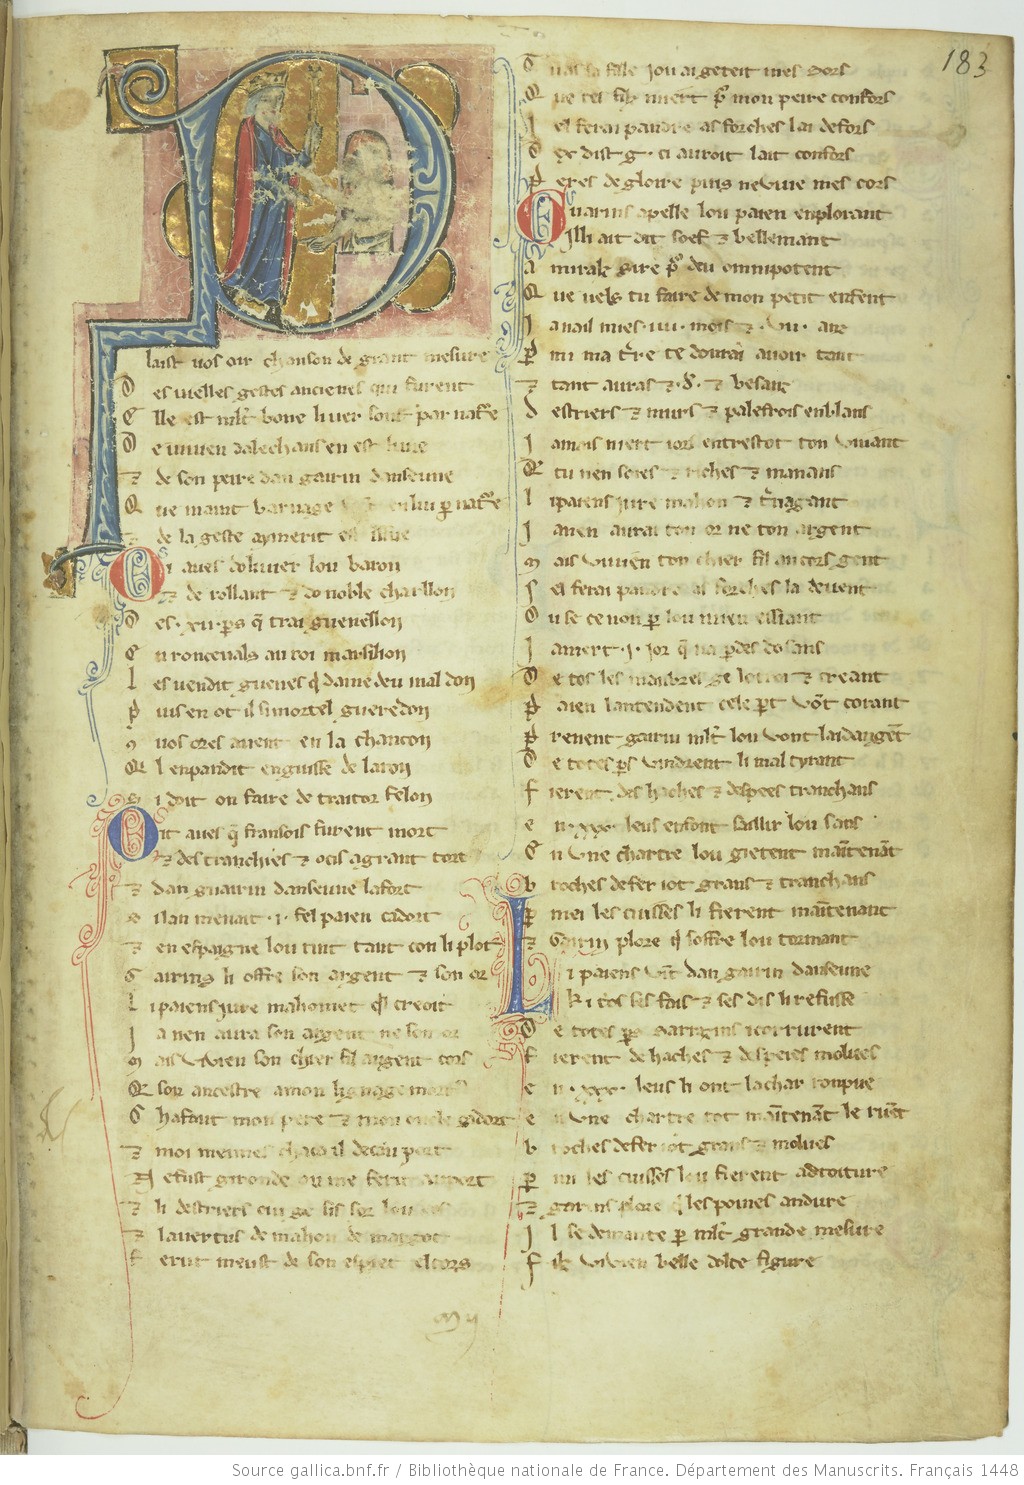 183
P
laist vos oir chanson de grant mesure
D es vielles gestes ancienes qui furent
E lle est mlt bone li ver sont par nature
D e vivien dalechans en est
⁊ de son peire dan gaurin danseune
Q ue maint barnage per nature
⁊ de la geste aymerit
O i aves dolivier lou baron
⁊ de rollant ⁊ do noble charllon
D es .xii. pers q̄ trai guenellon
E n roncevals au roi marsilion
L es vendit guenes q̄ dame deu mal don
P uis en ot il si mortel gueredon
9 vos ores avent en la chancon
Q l enpandit enguisse de laron
Si doit on faire de traitor felon
O it aves q̄ fransois furent mort
⁊ des tranchies ⁊ ocis a grant tort
⁊ dan guarin danseune lafort
e ilan menait .i. fel paien cadort
⁊ en espaigne lou tint tant con li plot
G aurins li offre son argent ⁊ son or
L i paiens jure mahomet q̄l creoit
J a nen aura son argent ne son or
M ais vivien son chier fil argent cors
Q son ancestre a mon lignage mort
G hafaut mon pere ⁊ mon oncle cadort
⁊ moi meimes chaca il
N efust gironde ou me
⁊ li destriers cui ge sis sor lou
⁊ la vertus de mahon de margot
F erut meust de son espiet el cors
D vas sa fille jou ai geteit mes sors
Q ue ces filz niert p̄ mon peire confors
J el ferai pandre as forches lai defors
D ex dist g. ci auroit lait confors
P eres de gloire puis ne vivie mes cors
G uarins apelle lou paien enplorant
Jlli ait dit soef ⁊ bellemant
A mirals sire por deu omnipotent
Q ue vels tu faire de mon petit enfent
J a nait mies .iiii. mois ⁊ .vii. anz
P mi ma t̄re te donrai avoir tant
⁊ tant auras ⁊ .d. ⁊ besanz
D estriers ⁊ murs ⁊ palefrois enblans
J amais niert jors entrestot ton vivant
Q tu nen soies ⁊ riches ⁊ manans
L i paiens jure mahon ⁊ t̄vagant
J a nen aurai ton or ne ton argent
M ais vivien ton chier fil an cors gent
S el ferai pandre as forches la devent
O u se ce non per lou mien essiant
J a niert .i. jor q̄ na perdes do sans
D e tos les manbres ge lotroi ⁊ creant
P aien lantendent cele pert vont corant
P renent gaurin mlt lou vont laidangent
D e totes pers vindrent li mal tyrant
F ierent des haches ⁊ despees tranchans
e n .xxx. leus enfont saillir lou sanc
E n une chartre lou gietent maintenant
b roches de fer iot grans ⁊ tranchans
P mei les cuisses li fierent maintenant
⁊ Gaurin plore q̄ soffre lou tormant
L i paiens vit dan gaurin danseune
ki tos ses fais ⁊ ses dis li refusse
D e totes pers sarrazins i corrurent
F ierent de haches ⁊ despeies molues
e n .xxx. leus li ont la char ronpue
e n une chartre tot maintenant le ruent
b roches de fer iot grans ⁊ molues
P mi les cuisses lou fierent adroiture
⁊ garins plore q̄ les poines andure
J l se demante per mlt grande mesure
F ilz vivien belle dolce figure
Source gallica.bnf.fr / Bibliothèque nationale de France. Département des Manuscrits. Français 1448